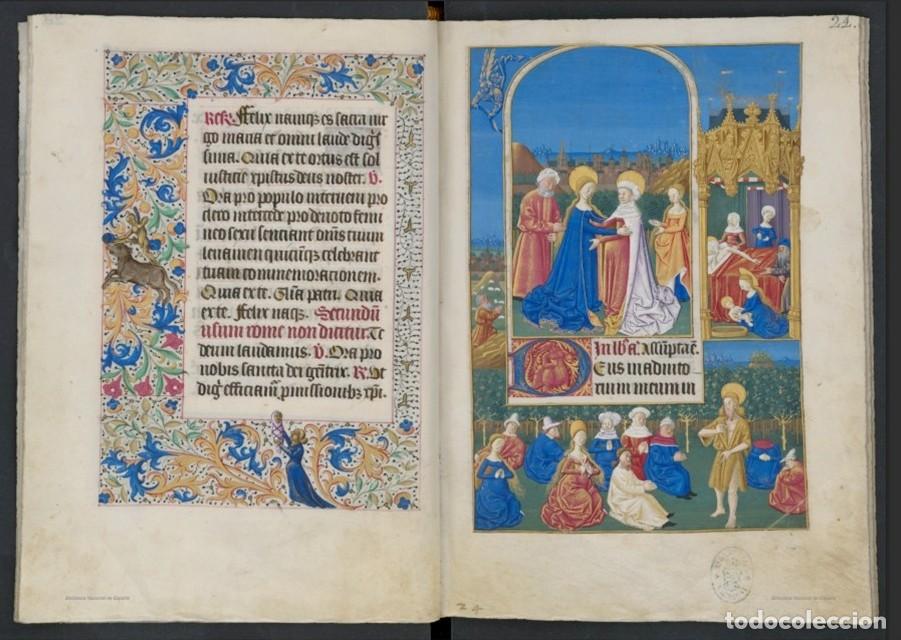 Resp. Felix namq; es sacta vir
go maria et omni laude dig
sima. Quia ex te ortus est sol
iustitie xpistus deus noster. V.
Ora pro populo interveni pro
clero intercede pro devoto femi
neo sexu sentiant omnes tuum
levamen quicunq; celebrant
tuam commemorationem.
Quia ex te. Glia patri. Quia
ex te. Felix naq;. Secundu
usum rome non dicitur. Te
deum laudamus. V. Ora pro
nobis sancta dei genitrix. R. Ut
digni efficiam pmissionibus xpi.
Biblioteca Nacional de España
22.
Deus in adiuto
rium meum in
24
Biblioteca Nacional de España
todocoleccion